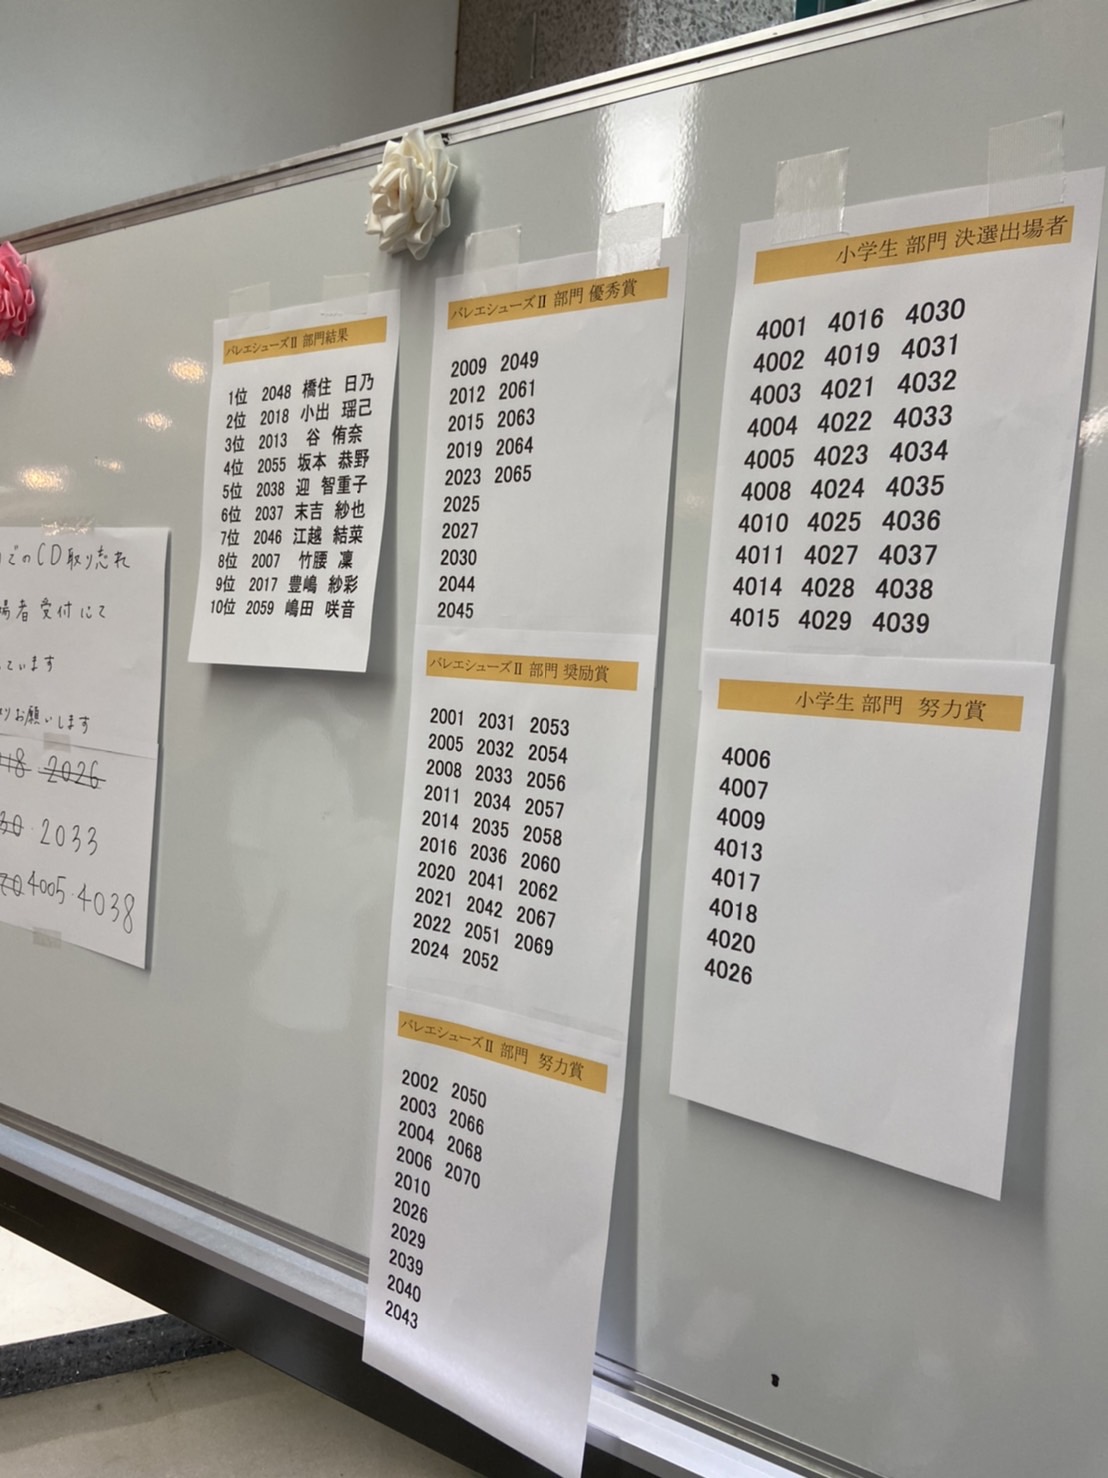 でのCD取り忘れ
場者受付にて
ています
お願いします
2026
2033
4005・4038
バレエシューズⅡ 部門結果
1位 2048 橋住 日乃
2位 2018 小出 瑶己
3位 2013 谷 侑奈
4位 2055 坂本 恭野
5位 2038 迎 智重子
6位 2037 末吉 紗也
7位 2046 江越 結菜
8位 2007 竹腰 凜
9位 2017 豊嶋 紗彩
10位 2059 嶋田 咲音
バレエシューズⅡ 部門 優秀賞
2009 2049
2012 2061
2015 2063
2019 2064
2023 2065
2025
2027
2030
2044
2045
バレエシューズⅡ 部門 奨励賞
2001 2031 2053
2005 2032 2054
2008 2033 2056
2011 2034 2057
2014 2035 2058
2016 2036 2060
2020 2041 2062
2021 2042 2067
2022 2051 2069
2024 2052
バレエシューズⅡ 部門 努力賞
2002 2050
2003 2066
2004 2068
2006 2070
2010
2026
2029
2039
2040
2043
小学生 部門 決選出場者
4001 4016 4030
4002 4019 4031
4003 4021 4032
4004 4022 4033
4005 4023 4034
4008 4024 4035
4010 4025 4036
4011 4027 4037
4014 4028 4038
4015 4029 4039
小学生 部門 努力賞
4006
4007
4009
4013
4017
4018
4020
4026